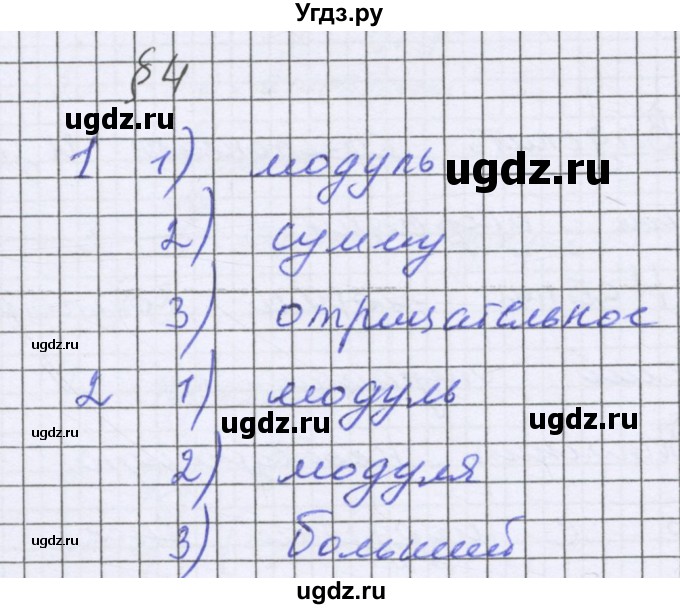 Угдз.ру
§4
ugdz.ru
1 1) модуль ugdz.ru
2) сумму
ugdz.ru
3) отрицательное
ugdz.ru
2 1) модуль
ugdz.ru ugdz.ru ugdz.ru
2) модуля
ugdz.ru
3) больший
ugdz.ru